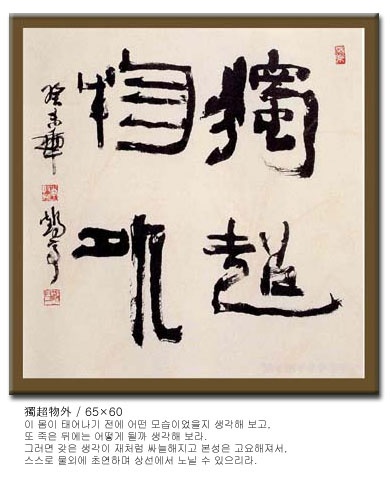 獨超
物外
癸未
獨超物外 / 65×60
이 몸이 태어나기 전에 어떤 모습이었을지 생각해 보고,
또 죽은 뒤에는 어떻게 될까 생각해 보라.
그러면 갖은 생각이 재처럼 싸늘해지고 본성은 고요해져서,
스스로 물외에 초연하며 상선에서 노닐 수 있으리라.